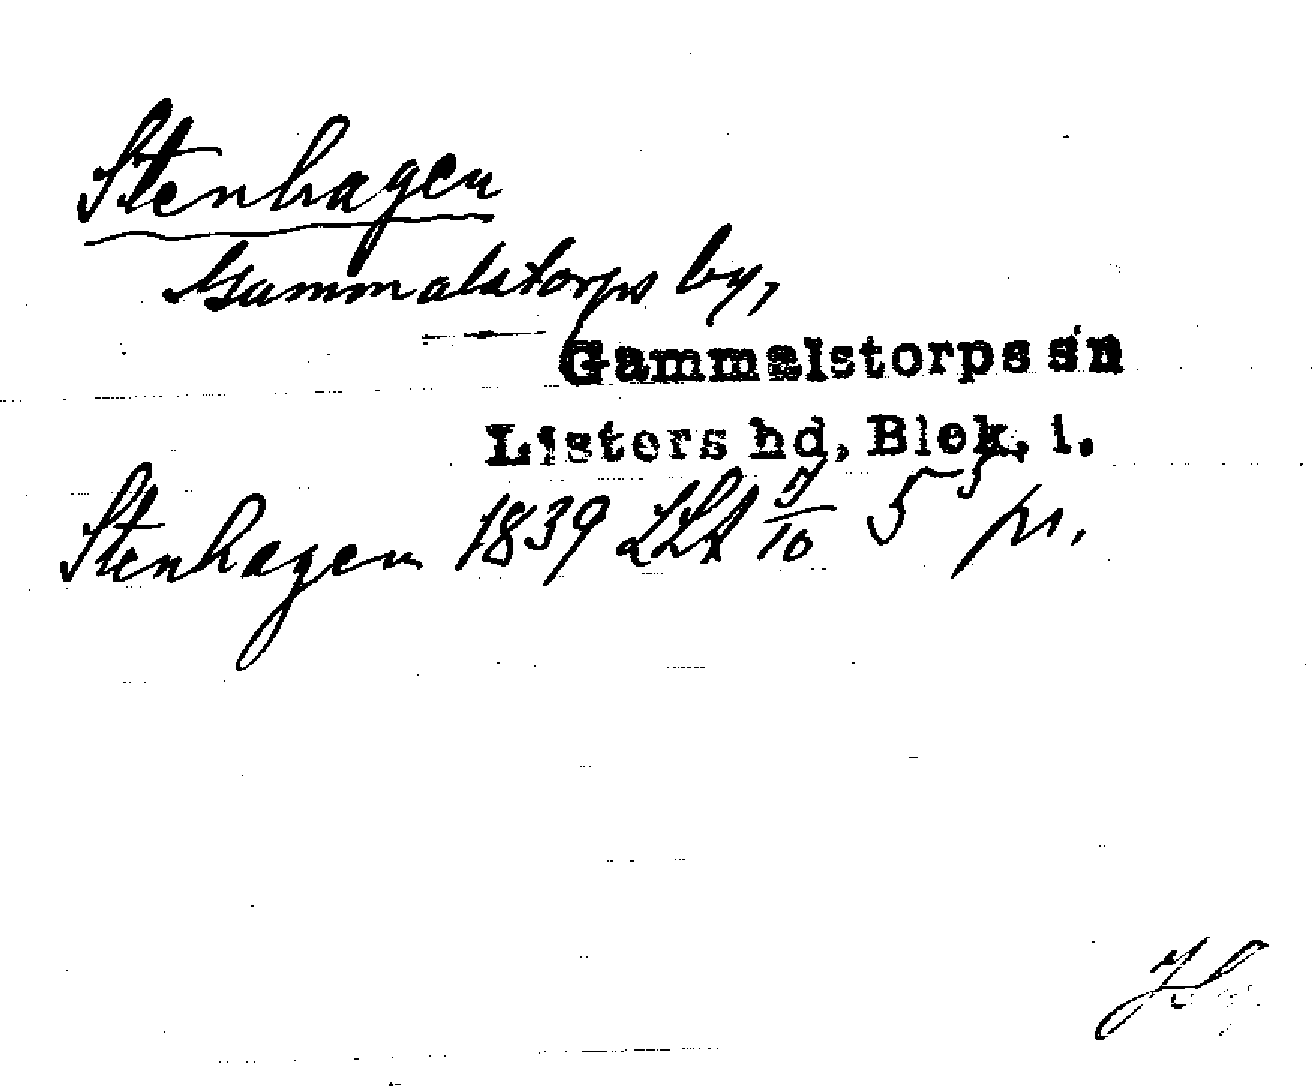 Stenhagen
Gammalstorps by,
Gammalstorps sn
Listers hd, Blek. l.
Stenhagen 1839 LSA 7/10 5